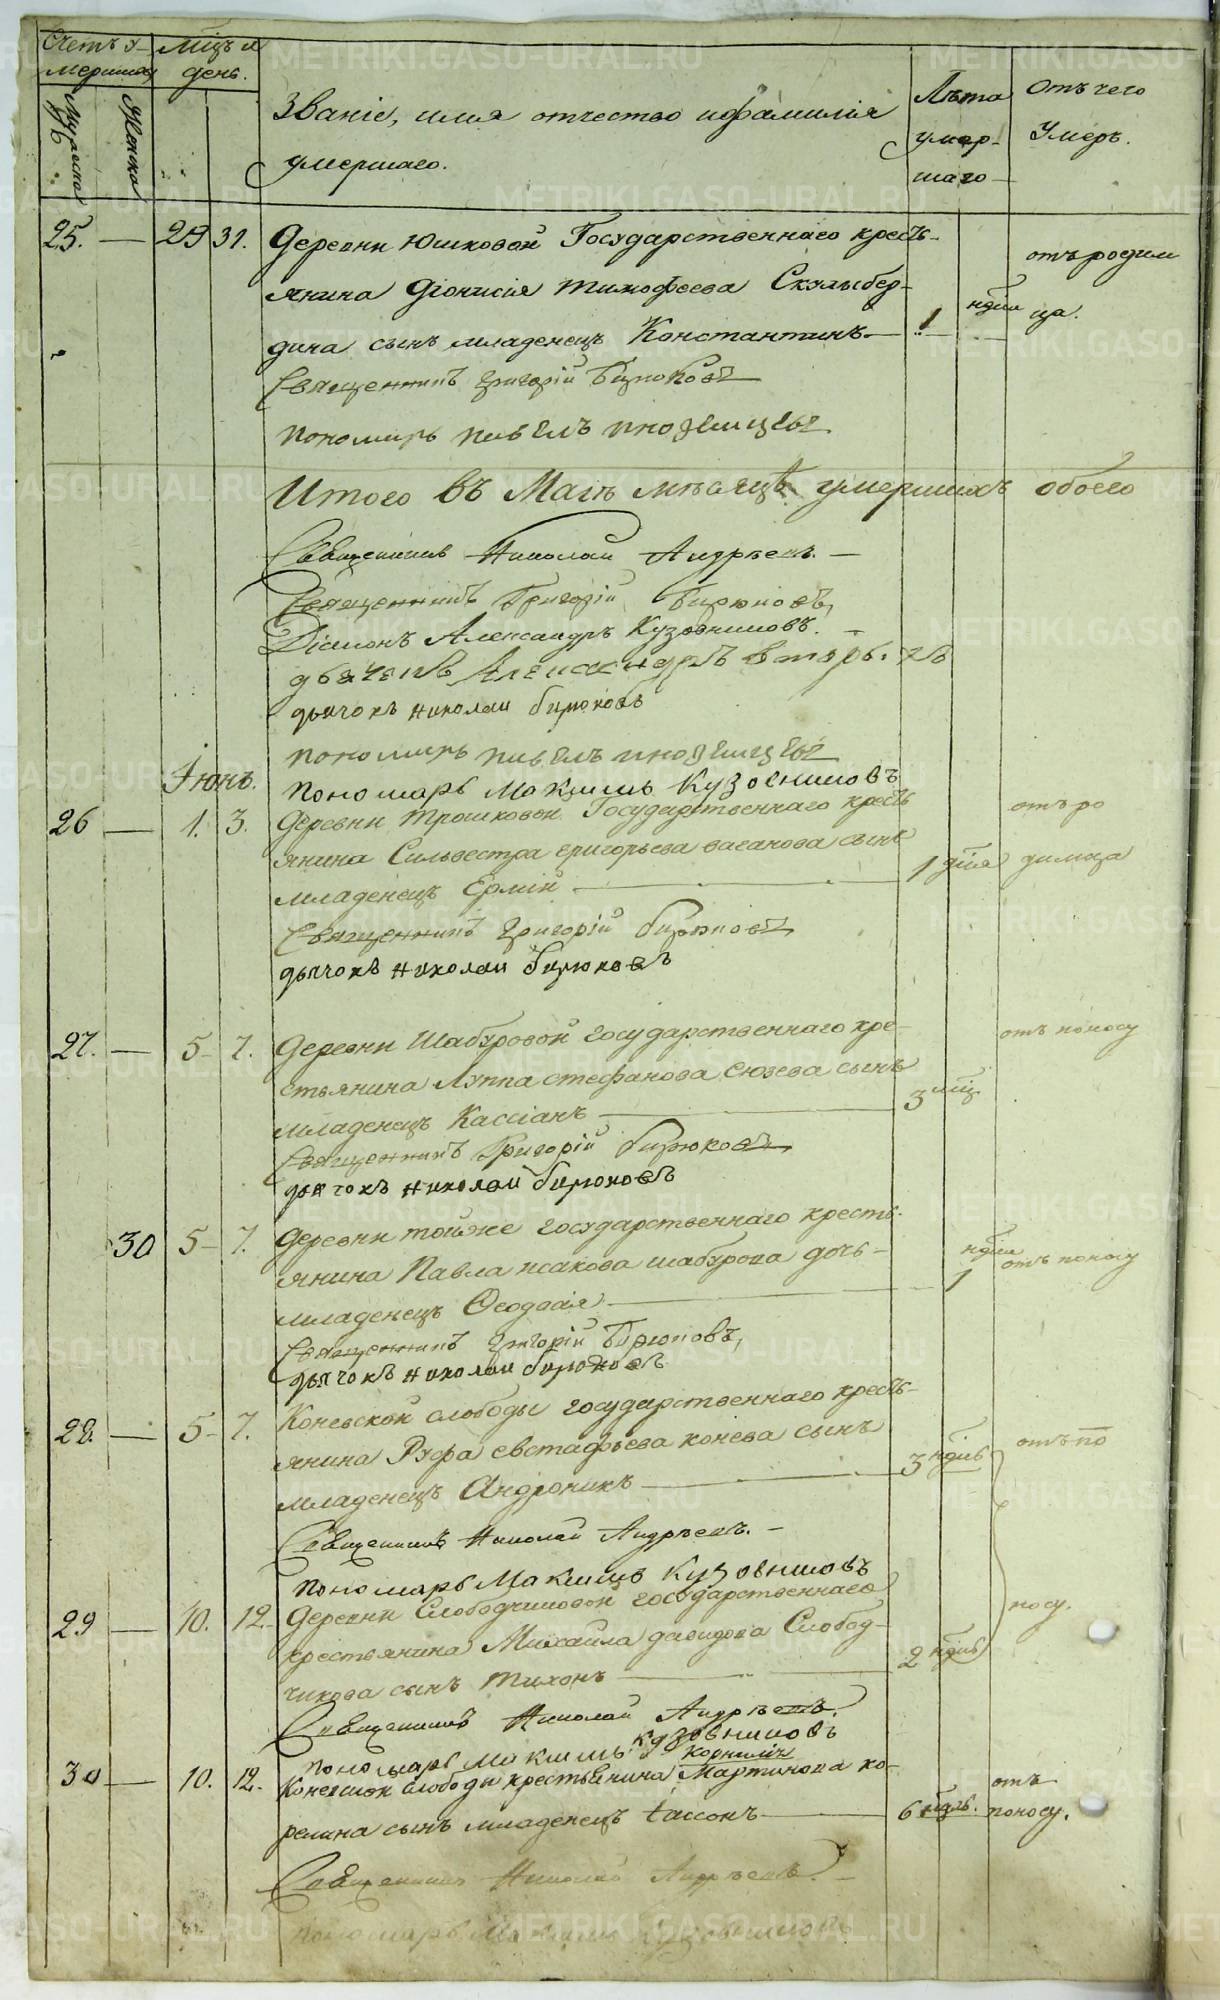 Счетъ у-
мершихъ
Мужеска
Женска
мѣцъ и
день.
Званіе, имя отчество и фамилія
умершаго.
Лѣта
умер-
шаго
Отъ чего
Умеръ.
25. — 29 31. Деревни Юшковой Государственнаго кресть-
янина Діонисія Тимофеева Скулыбер-
дина сынъ младенецъ Константинъ. — 1 ндѣли
отъ родим
ца.
Священникъ Григорій Бирюковъ
пономарь Павелъ Иноземцевъ
Итого въ Маіѣ мѣсяцѣ умершихъ обоего
Священникъ Николай Андреевъ. —
Священникъ Григорій Бирюковъ,
Діаконъ Александръ Кузовниковъ. —
дьячекъ Александръ
дьячокъ Николай Бирюковъ
пономарь Павелъ Иноземцевъ
Іюнь.
пономарь Максимъ Кузовниковъ
26 — 1. 3. Деревни Трошковой Государственнаго кресть
янина Сильвестра Григорьева Ваганова сынъ
младенецъ Ермій — 1 дня
отъ ро
димца
Священникъ Григорій Бирюковъ
дьячокъ Николай Бирюковъ
27. — 5 - 7. Деревни Шабуровой государственнаго кре-
стьянина Луппа Стефанова Сюзева сынъ
младенецъ Кассіанъ — 3 мцѣ
отъ поносу
Священникъ Григорій Бирюковъ
дьячокъ Николай Бирюковъ
30 5 - 7. Деревни тойже государственнаго кресть-
янина Павла Исакова Шабурова дочь -
младенецъ Ѳеодосія — 1 ндѣли
отъ поносу
Священникъ Григорій Бирюковъ,
дьячокъ Николай Бирюковъ
28. — 5 - 7. Коневской слободы государственнаго кресть-
янина Руфа Евстафьева Конева сынъ
младенецъ Андроникъ — 3 ндѣль
отъ по
Священникъ Николай Андреевъ. -
пономарь Максимъ Кузовниковъ
29 — 10. 12. Деревни Слободчиковой государственнаго
крестьянина Михаила Давидова Слобод-
чикова сынъ Тихонъ — 2 ндѣль
носу.
Священникъ Николай Андреевъ.
пономарь Максимъ Кузовниковъ
Корнилія
30 — 10. 12. Коневской слободы крестьянина Мартинова Ко-
релина сынъ младенецъ Іассонъ — 6 ндѣль.
отъ
поносу.
Священникъ Николай Андреевъ. -
пономарь Максимъ Кузовниковъ